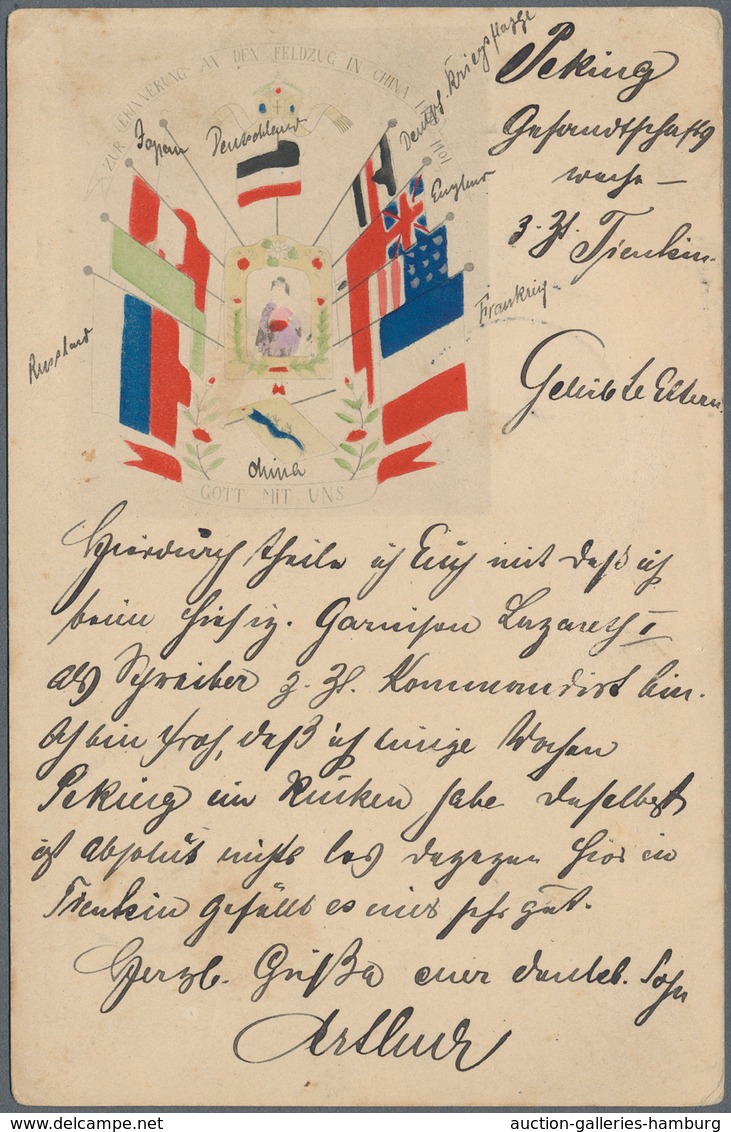 ZUR ERINNERUNG AN DEN FELDZUG IN CHINA 1901
Japan
Deutschland
Deutsch. Kriegsflagge
England
Frankrig
Russland
China
GOTT MIT UNS
Peking
Gesandtschafts
wache —
z. Zt. Tientsin.
Geliebte Eltern.
Hierdurch theile ich Euch mit daß ich
beim hiesig. Garnison Lazareth I
als Schreiber z. Zt. Kommandirt bin.
Ich bin froh, daß ich einige Wochen
Peking im Rücken habe daselbst
ist absolut nichts los dagegen hier in
Tientsin gefällt es mir sehr gut.
Herzl. Grüße euer dankb. Sohn
Arthur
auction-galleries-hamburg.com